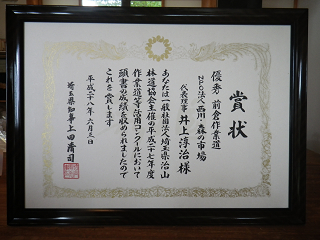 賞状
優秀 前倉作業道
NPO法人 西川・森の市場
代表理事 井上淳治 様
あなたは一般社団法人埼玉県治山
林道協会主催の平成二十七年度
作業道等活用コンクールにおいて
頭書の成績を収められましたので
これを賞します
平成二十八年六月三日
埼玉県知事 上田清司